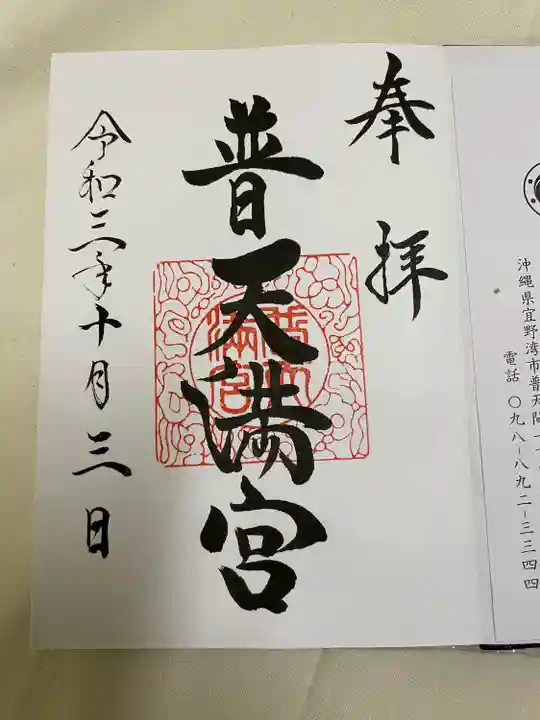 沖縄県宜野湾市普天間
電話 〇九八-八九二-三三四四
奉拝
普天満宮
普天満宮
令和三年十月三日